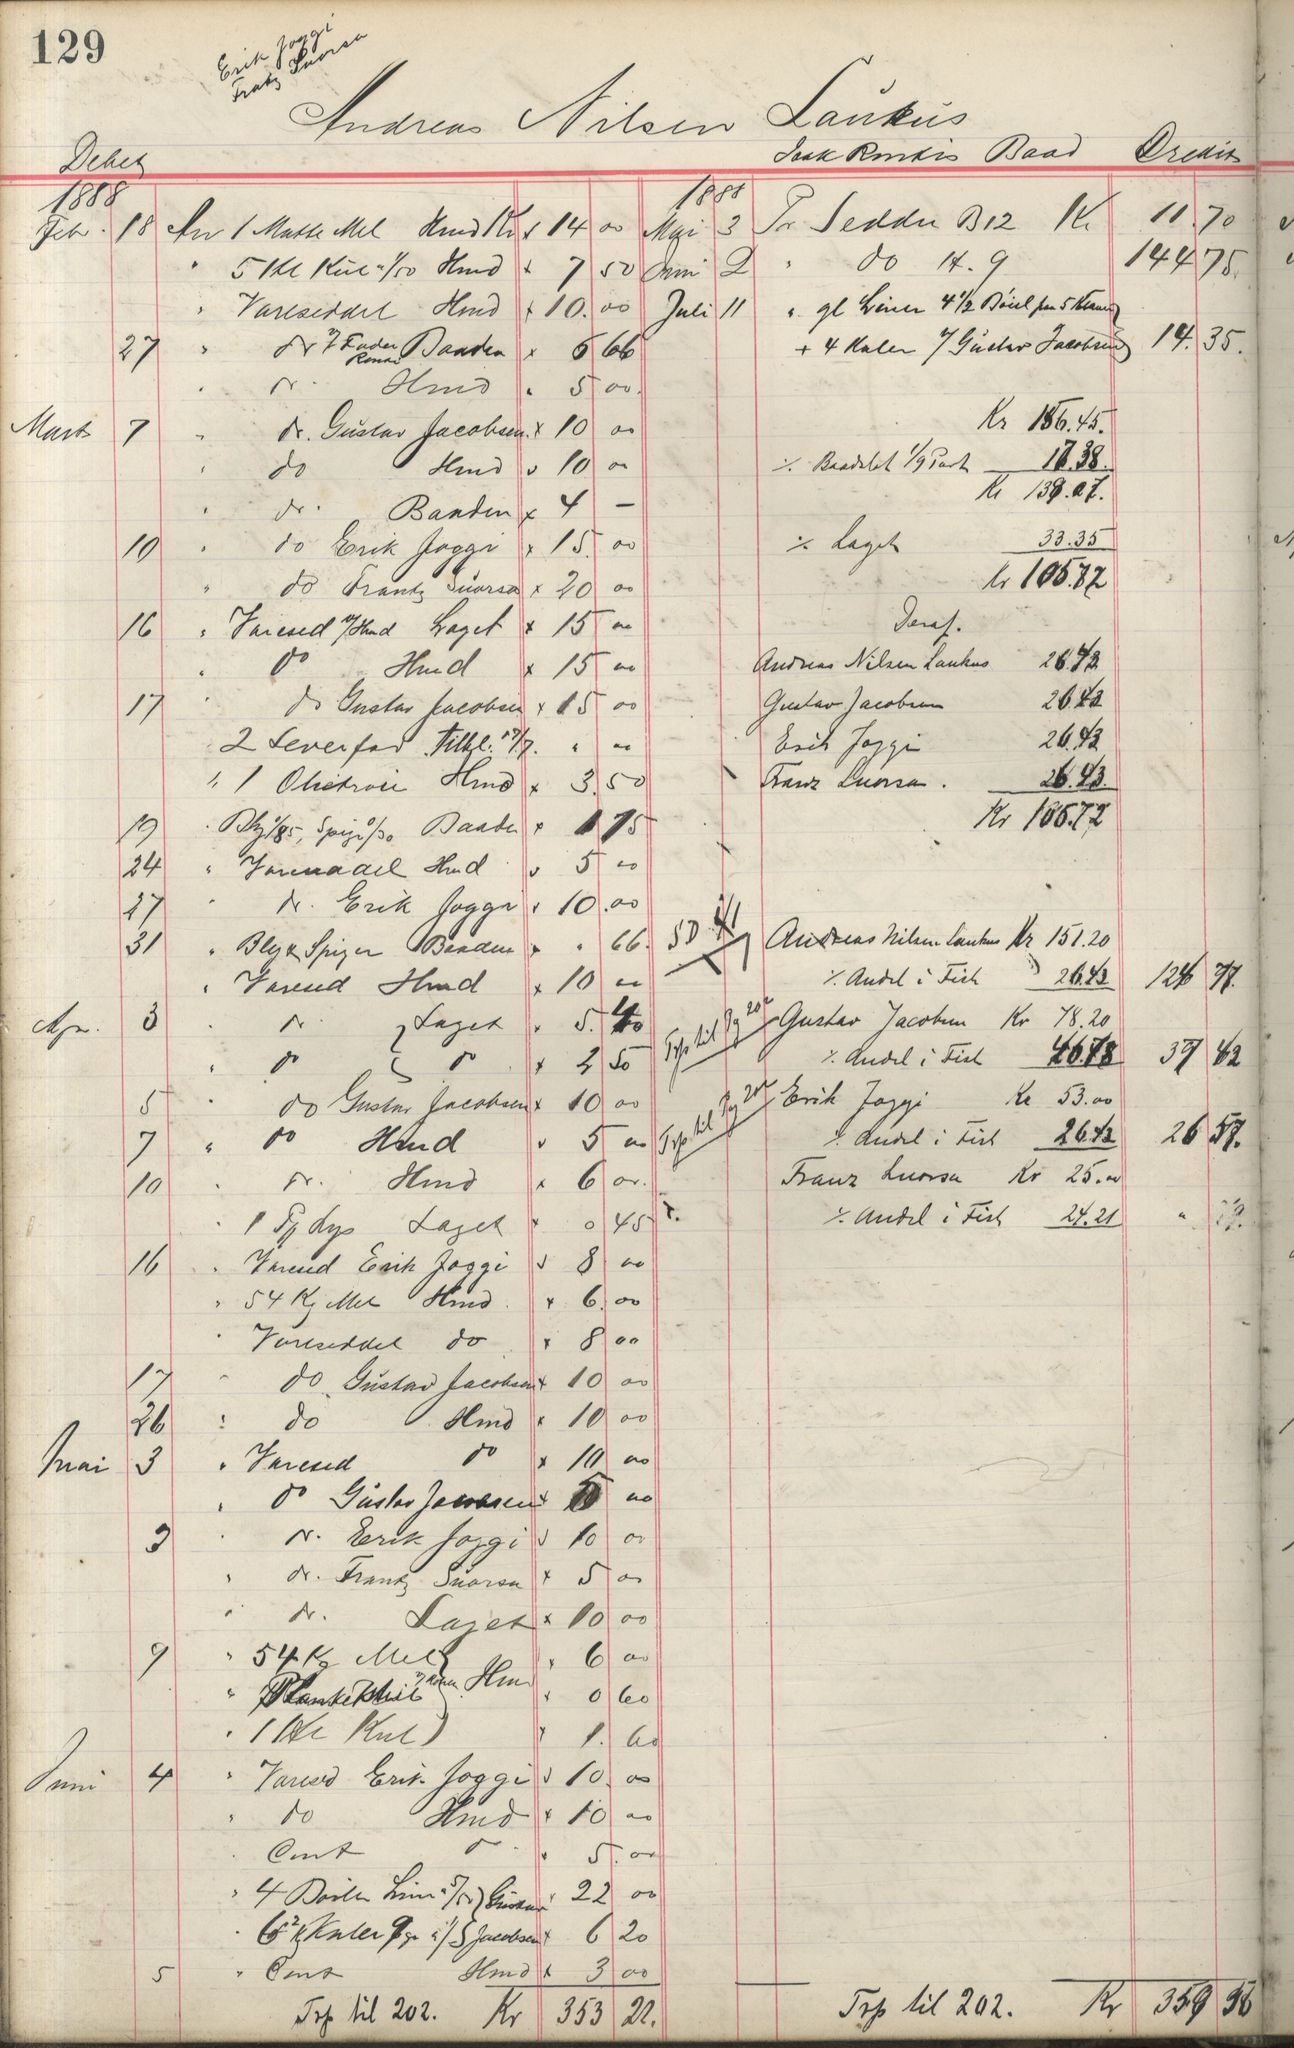 129
Erik Joggi
Frantz Suorsa
Andreas Nilsen Laukus
Debet
Baad Credit
1888
Febr. 18 An 1 Matte Mel Hmd Kr 14 00
" 5 Hl Kul a 1/50 Hmd 7 50
" Vareseddel Hmd 10.00
27 " do Baaden 6 66
" do Hmd 5 00
Marts 7 " do. Gustav Jacobsen 10 00
" do Hmd 10 00
" do. Baaden 4 —
10 " do Erik Joggi 15.00
" do Frantz Suorsa 20 00
16 " Varesed Hmd Laget 15 00
" do Hmd 15 00
17 " do Gustav Jacobsen 15 00
2 Leverfad Tilbl. " "
" 1 Olietroie Hmd 3.50
19 " Baaden 1 75
24 " Hmd 5 00
27 " do. Erik Joggi 10.00
31 " Bly & Spiger Baaden " 66.
" Varesed Hmd 10 00
Apr. 3 " do. Laget 5.
" do do 2 50
5 " do Gustav Jacobsen 10 00
7 " do Hmd 5 00
10 " do. Hmd 6 00.
" 1 Pk Lys Laget 0 45
16 " Varesed Erik Joggi 8 00
" 54 Kg Mel Hmd 6.00
" Vareseddel do 8 00
17 " do Gustav Jacobsen 10 00
26 " do Hmd 10 00
Mai 3 " Varesed do 10 00
" do Gustav Jacobsen 00
3 " do. Erik Joggi 10 00
" do. Frantz Suorsa 5 00
" do. Laget 10 00
9 " 54 Kg Mel 6 00
" Hmd 0 60
" 1 Hl Kul 1.60
Juni 4 " Varesed Erik Joggi 10.00
" do Hmd 10 00
" Cont do 5.00
" 4 Boiler Line Gustav 22 00
" Kuler Jacobsen 6 20
5 " Cont Hmd 3 00
Trp til 202. Kr 353 22.
1888
Mai 3 Pr Seddel B12 Kr 11.70
Juni 2 " do 14.9 144 75.
Juli 11 " gl Liner 4 1/2 Boiel
+ 4 Kuler Gustav Jacobsen 14.35.
Kr 156.45.
% Baadslot 1/9 Part 17.38.
Kr 139.07.
% Laget 33.35
Kr 105.72
Deraf.
Andreas Nilsen Laukus 26.43
Gustav Jacobsen 26.43
Erik Joggi 26.43
Franz Suorsa. 26.43.
Kr 105.72
Andreas Nilsen Laukus Kr 151.20
% Andel i Fisk 26.43 124 77.
Trp til Pg 202 Gustav Jacobsen Kr 78.20
% Andel i Fisk
Trp til Pg 202 Erik Joggi Kr 53.00
% Andel i Fisk 26.43 26 57.
Franz Suorsa Kr 25.00
% Andel i Fisk 24.21 " 79.
Trp til 202. Kr 359 56